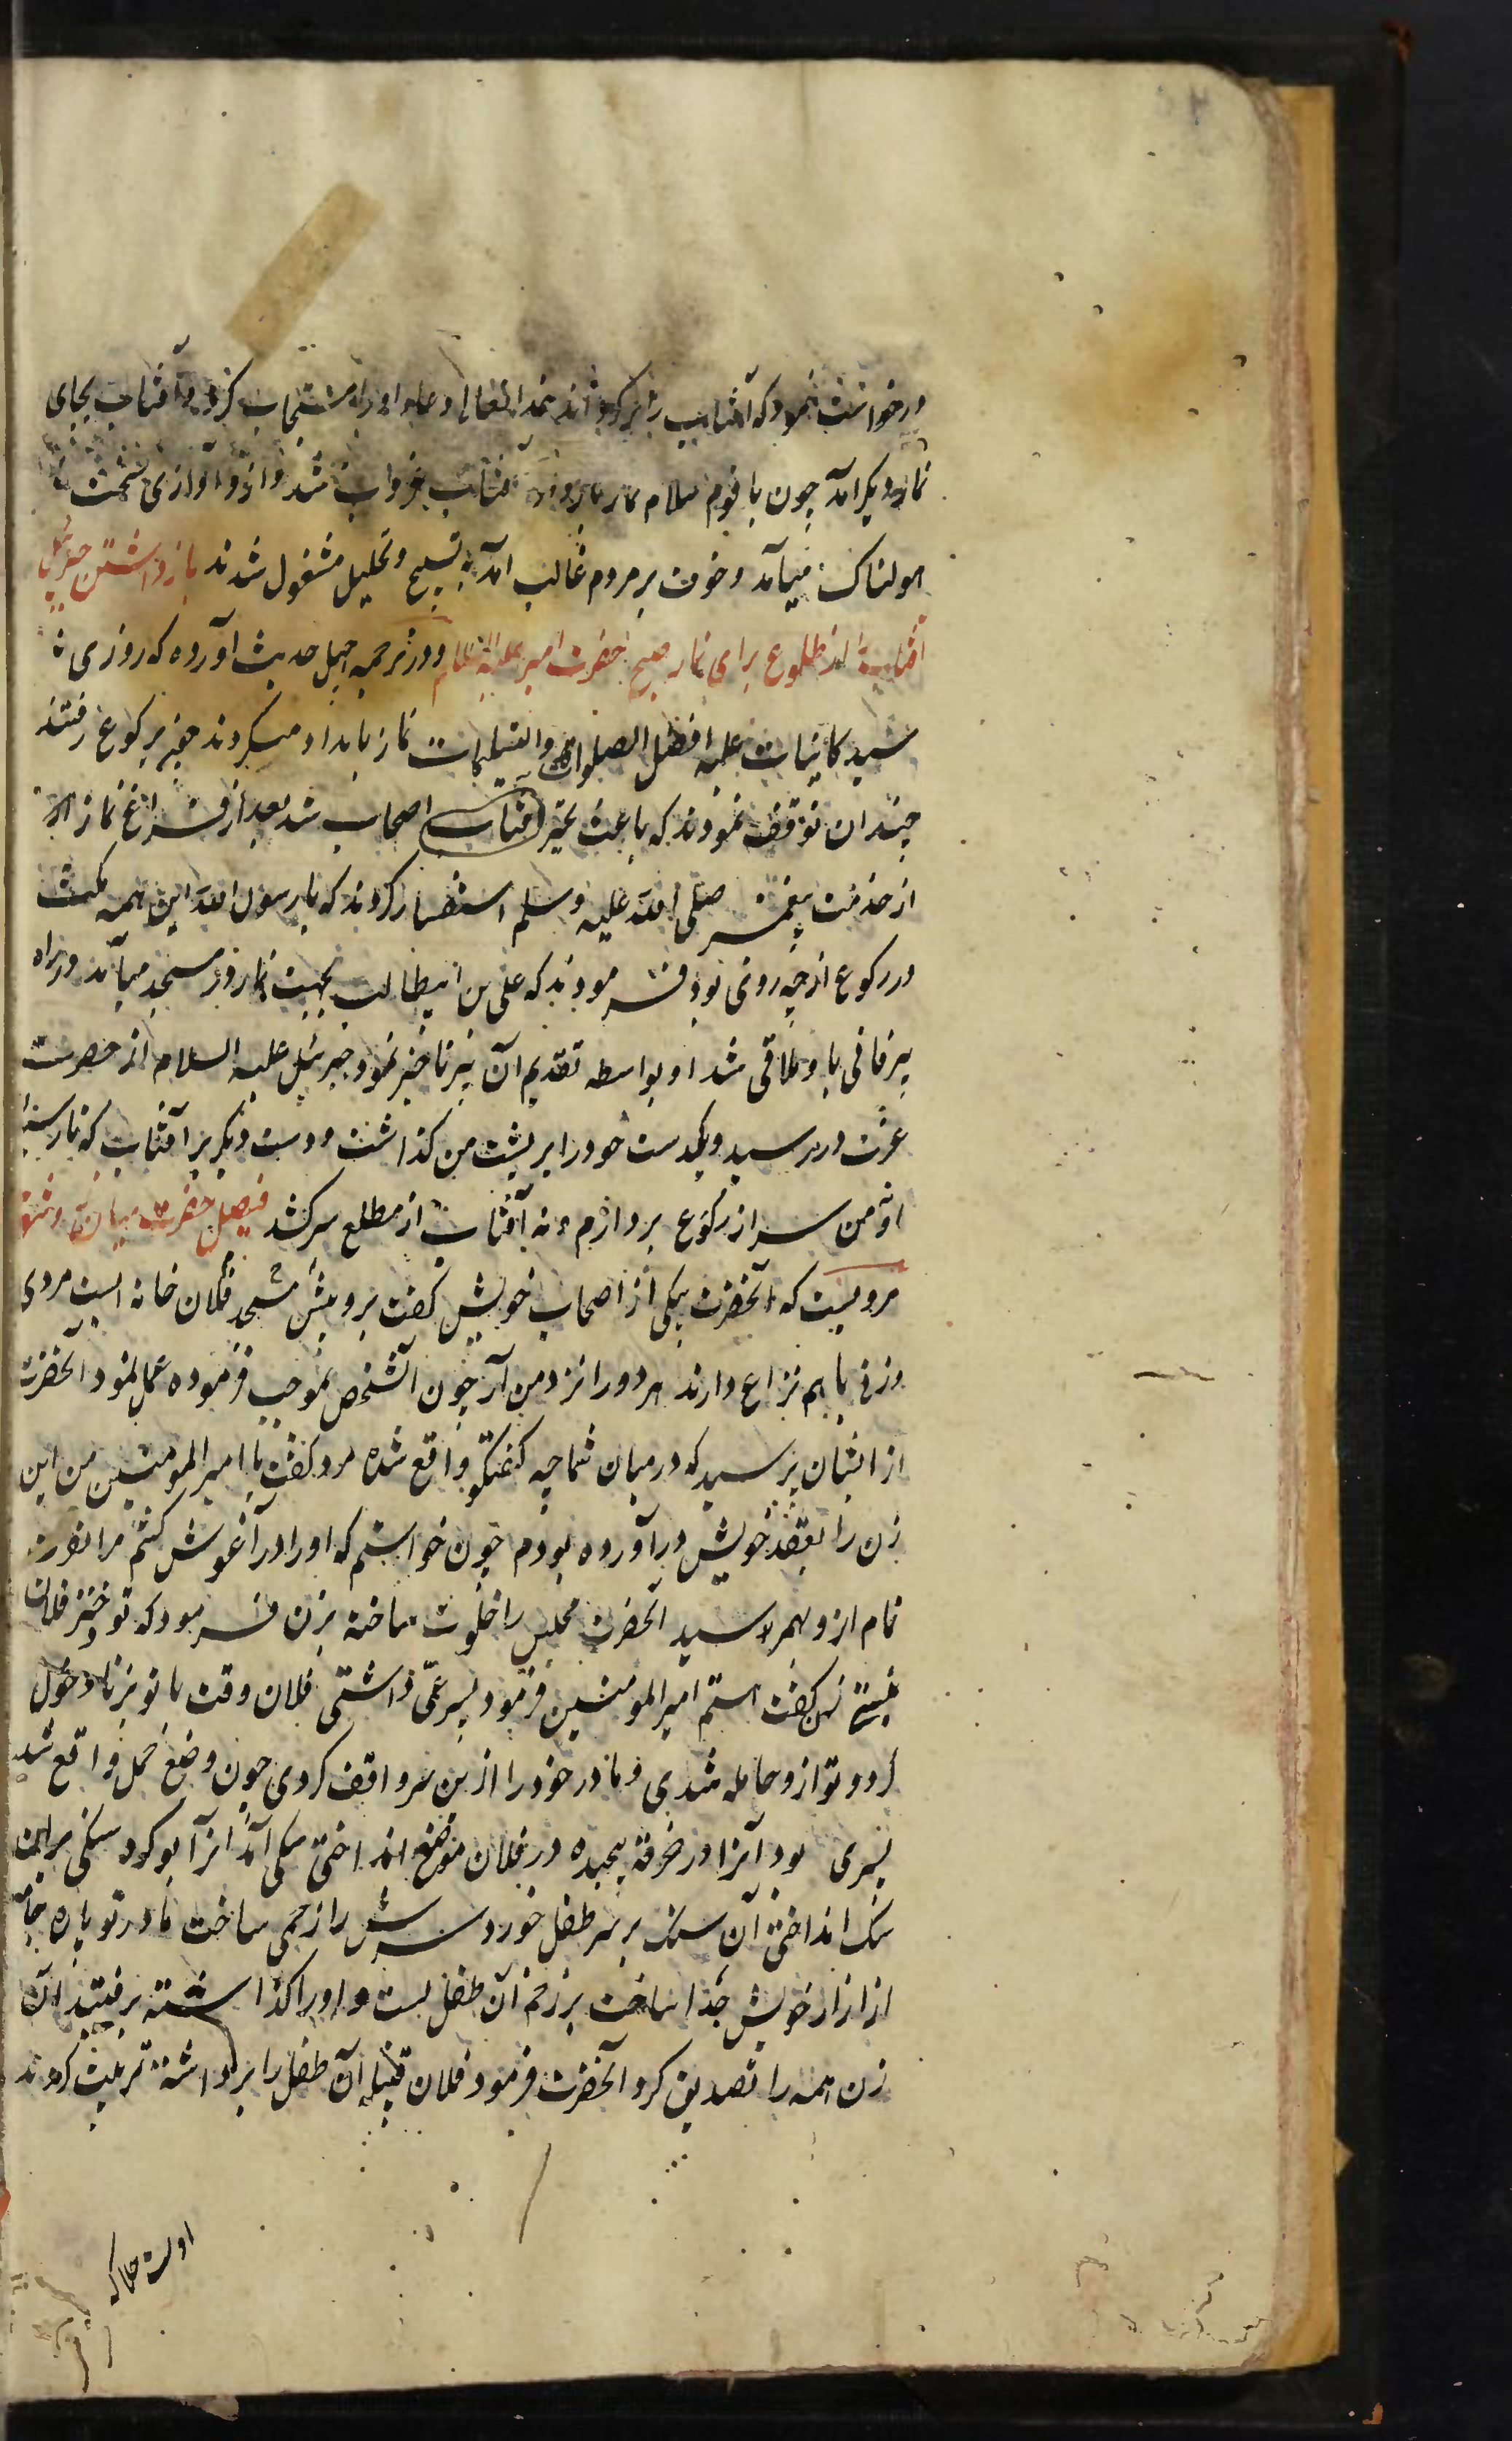 درخواست نمود که آفتاب را برگرداند خدایتعالی دعاء او را مستجاب کرد و آفتاب بجای
نماز دیگر آمد چون با قوم سلام نماز باز آفتاب غروب شد و ازو آوازی سخت
هولناک میآمد و خوف بر مردم غالب آمد به تسبیح و تحلیل مشغول شدند بازداشتن جبرئیل
آفتاب را از طلوع برای نماز صبح حضرت امیر علیه السلام و در ترجمه چهل حدیث آورده که روزی
سید کاینات علیه افضل الصلوات والتسلیمات نماز بامداد میکردند چون برکوع رفتند
چندان توقف نمودند که باعث تحیر اصحاب شد بعد از فراغ نماز
از خدمت پیغمبر صلی الله علیه وسلم استفسار کردند که یا رسول الله این همه مکث
در رکوع از چه روی بود فرمودند که علی بن ابیطالب بجهت نماز در مسجد میآمد در راه
پیر فانی باو ملاقی شد او بواسطه تقدیم آن پیر تاخیر نمود جبرئیل علیه السلام از حضرت
عزت در رسید و یکدست خود را بر پشت من گذاشت و دست دیگر بر آفتاب که تا رسیدن
او نه من سر از رکوع بردارم و نه آفتاب از مطلع سر کشد فیصل حضرت میان
مرویست که آنحضرت بیکی از اصحاب خویش گفت برو پیش مسجد فلان خانه ایست مردی
وزنی باهم نزاع دارند هر دو را نزد من آر چون آنشخص بموجب فرموده عمل نمود آنحضرت
از ایشان پرسید که در میان شما چه گفتگو واقع شده مرد گفت یا امیرالمومنین من این
زن را بعقد خویش در آورده بودم چون خواستم که او را در آغوش کشم مرا نفرت
تمام ازو بهم رسید آنحضرت مجلس را خلوت ساخته بزن فرمود که تو دختر فلان
نیستی زن گفت هستم امیرالمومنین فرمود پسر عمی داشتی فلان وقت با تو بزنا دخول
کرد و تو ازو حامله شدی و مادر خود را ازین سر واقف کردی چون وضع حمل واقع شد
پسری بود آنرا در خرقه پیچیده در فلان موضع انداختی سگی آمد آنرا بو کرد سنگی بر آن
سگ انداختی آن سنگ بر سر طفل خورد سرش را زخمی ساخت مادر تو پاره جامه
از ازار خویش جدا ساخت بر زخم آن طفل بست و او را گذاشته برفتید آن
زن همه را تصدیق کرد آنحضرت فرمود فلان قبیله آن طفل را برداشته تربیت کردند